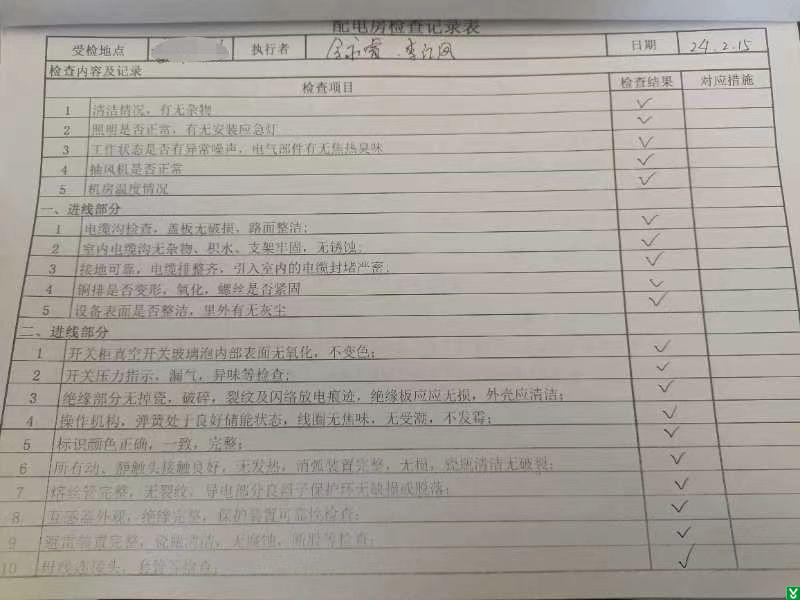 配电房检查记录表
受检地点 执行者 日期 24.2.15
检查内容及记录
检查项目 检查结果 对应措施
1 清洁情况，有无杂物 ✓
2 照明是否正常，有无安装应急灯 ✓
3 工作状态是否有异常噪声，电气部件有无焦热臭味 ✓
4 抽风机是否正常 ✓
5 机房温度情况 ✓
一、进线部分
1 电缆沟检查，盖板无破损，路面整洁； ✓
2 室内电缆沟无杂物、积水、支架牢固，无锈蚀； ✓
3 接地可靠，电缆排整齐，引入室内的电缆封堵严密； ✓
4 铜排是否变形，氧化，螺丝是否紧固 ✓
5 设备表面是否整洁，里外有无灰尘 ✓
二、进线部分
1 开关柜真空开关玻璃泡内部表面无氧化，不变色； ✓
2 开关压力指示，漏气，异味等检查； ✓
3 绝缘部分无掉瓷，破碎，裂纹及闪络放电痕迹，绝缘板应应无损，外壳应清洁； ✓
4 操作机构，弹簧处于良好储能状态，线圈无焦味，无受潮，不发霉； ✓
5 标识颜色正确，一致，完整； ✓
6 所有动、静触头接触良好，无发热，消弧装置完整，无损，瓷瓶清洁无破裂； ✓
7 熔丝管完整，无裂纹，导电部分良好子保护环无缺损或脱落； ✓
8 互感器外观，绝缘完整，保护装置可靠性检查； ✓
9 避雷装置完整，瓷瓶清洁，无腐蚀，断股等检查； ✓
10 母线连接头，套管等检查； ✓